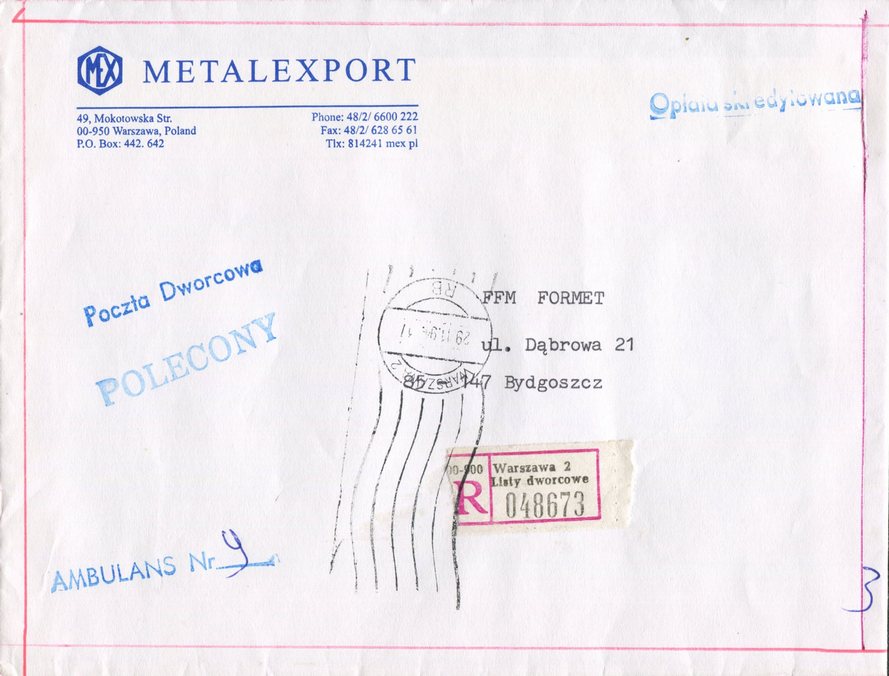 MEX METALEXPORT
49, Mokotowska Str.
00-950 Warszawa, Poland
P.O. Box: 442. 642
Phone: 48/2/ 6600 222
Fax: 48/2/ 628 65 61
Tlx: 814241 mex pl
Opłata skredytowana
Poczta Dworcowa
POLECONY
RB
29.11.94
WARSZAWA 2
FFM FORMET
ul. Dąbrowa 21
85 - 147 Bydgoszcz
00-900 Warszawa 2
Listy dworcowe
R 048673
AMBULANS Nr 9
3